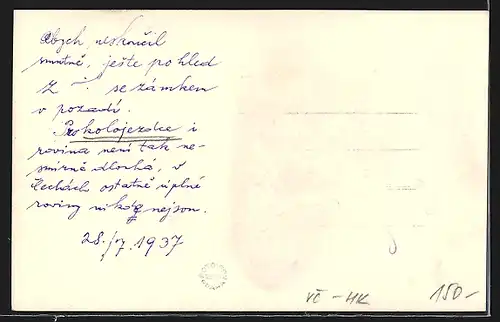 Abych neskončil
smutně, ješte pohled
z se zámkem
v pozadí.
Pro kolojezdce i
rovina není tak ne-
smírně dlouhá, v
Čechách ostatně úplné
roviny nikde nejsou.
28./7. 1937
VČ - HK
150,-